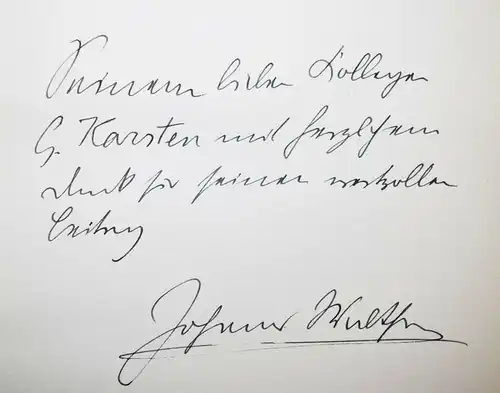 Seinem lieben Kollegen
G. Karsten mit herzlichem
Dank für seinen wertvollen
Beitrag
Johannes Walther